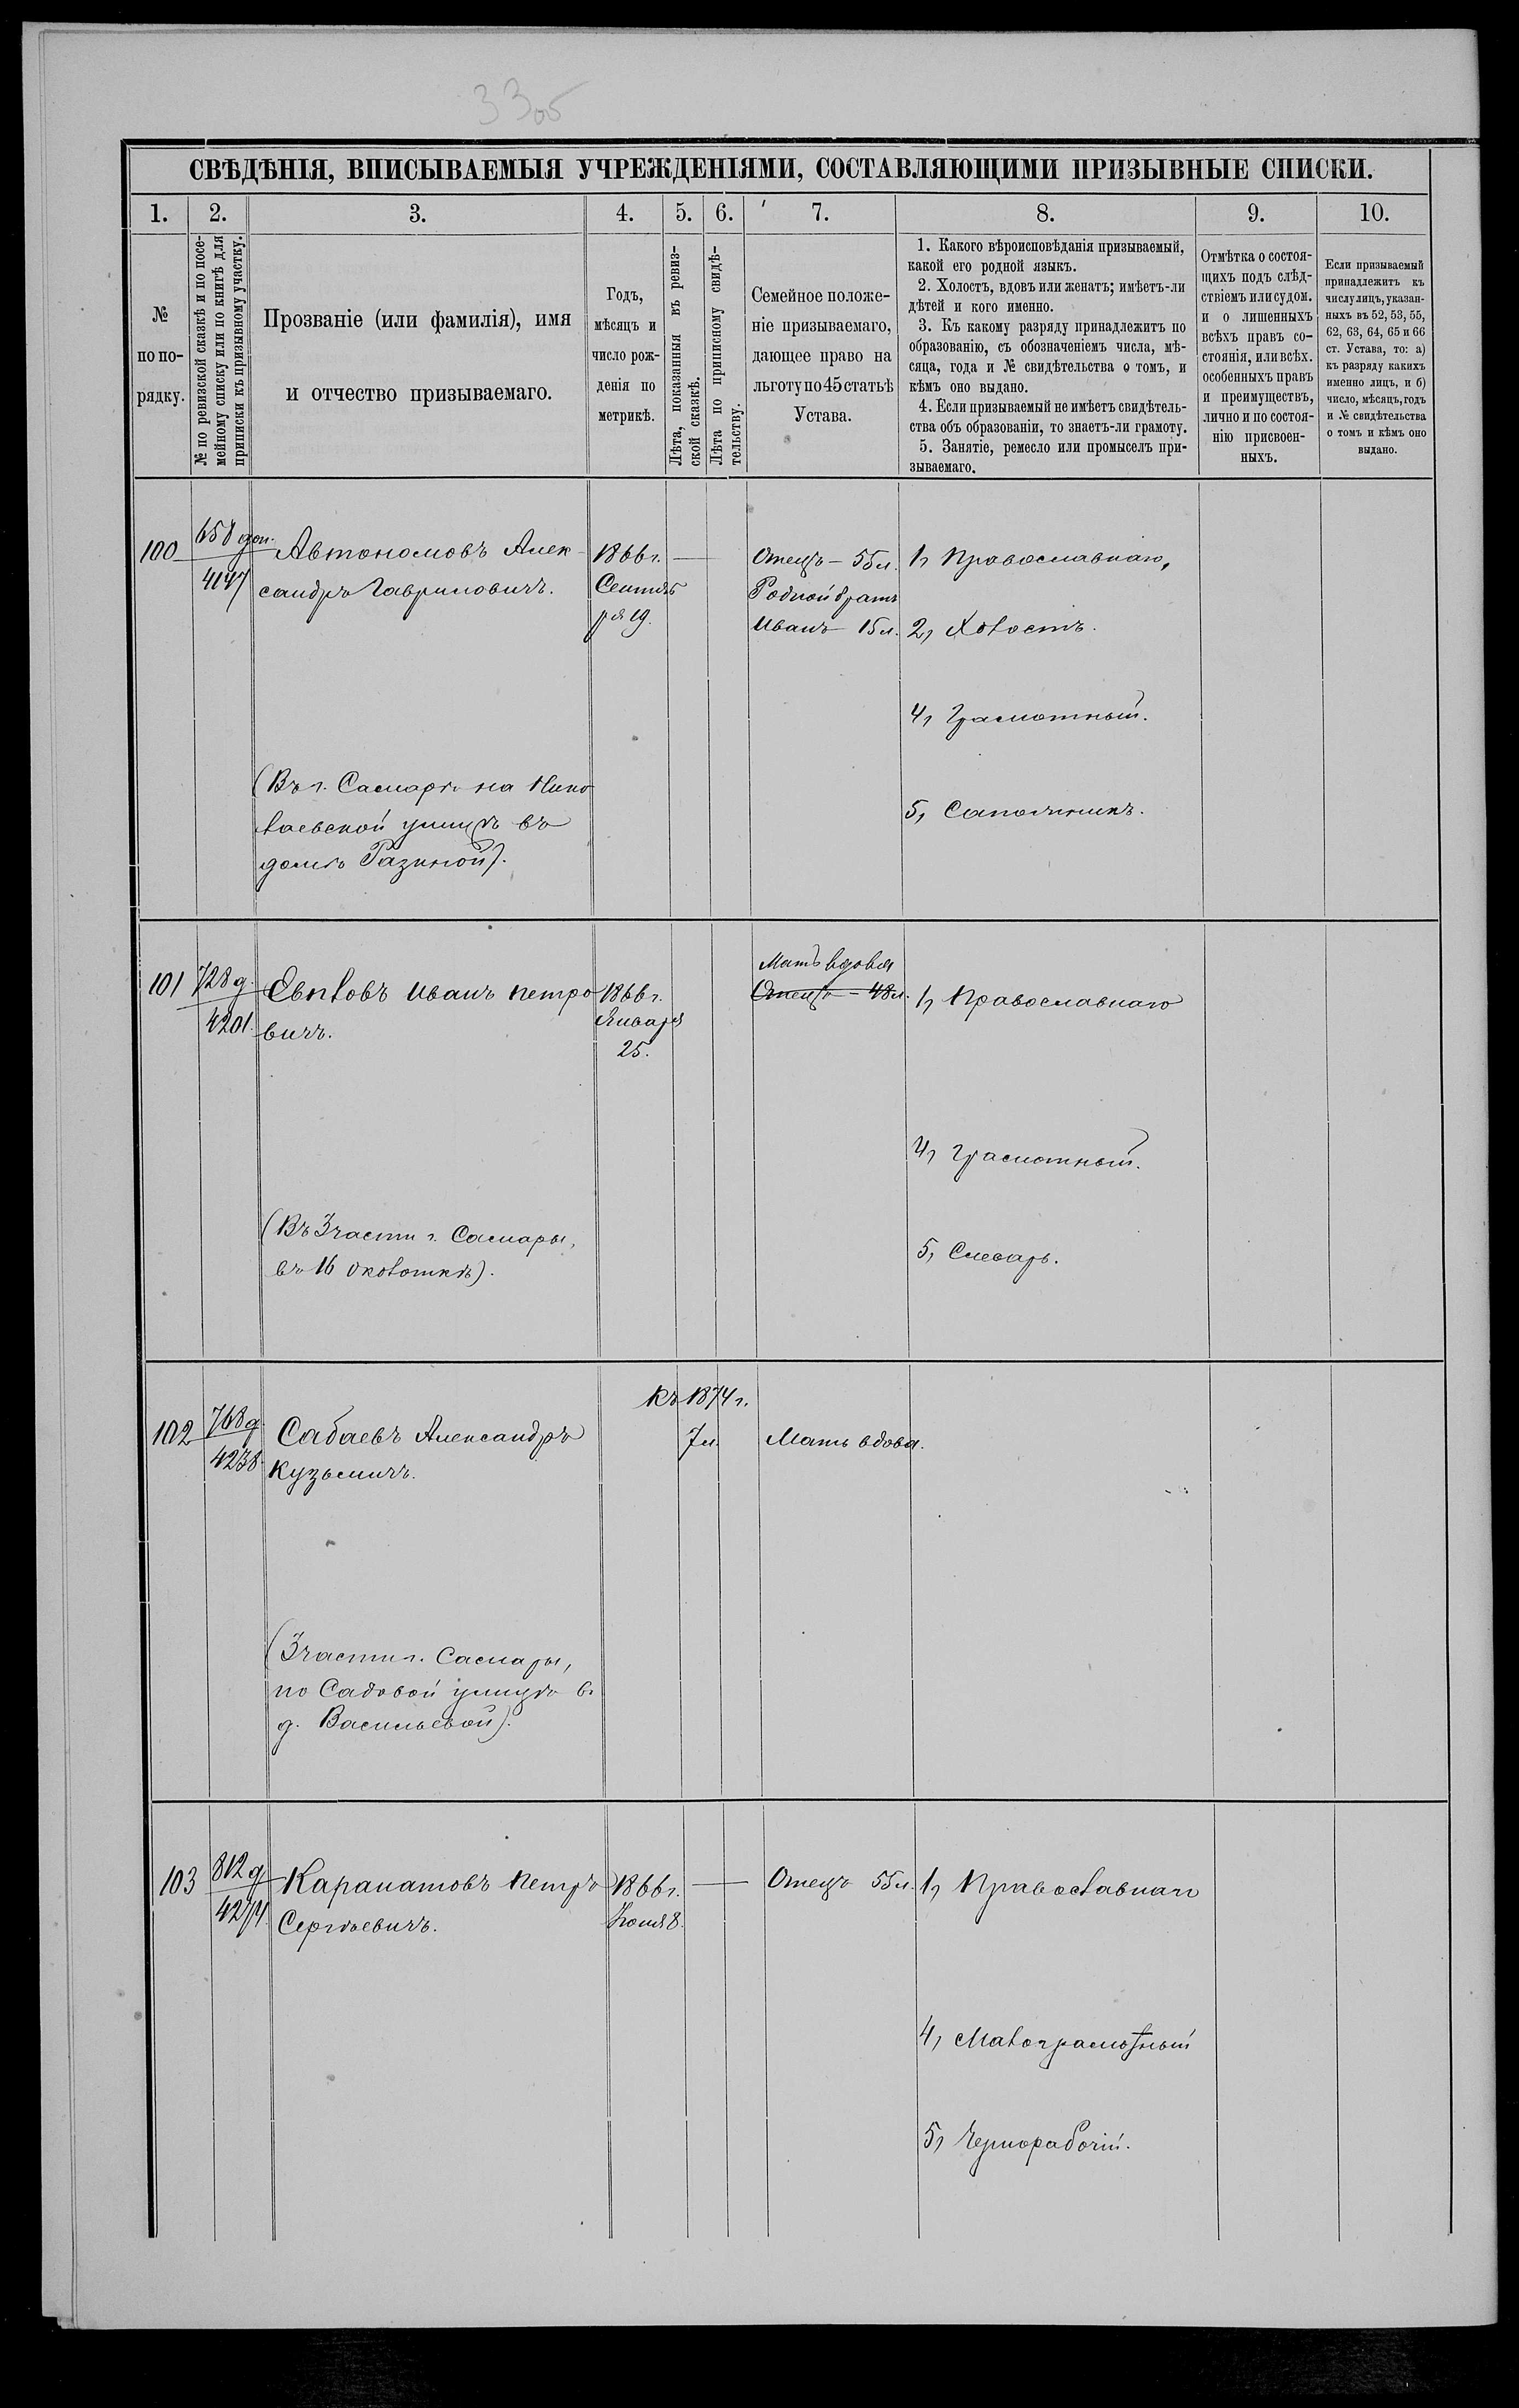 33об
СВѢДѢНІЯ, ВПИСЫВАЕМЫЯ УЧРЕЖДЕНІЯМИ, СОСТАВЛЯЮЩИМИ ПРИЗЫВНЫЕ СПИСКИ.
1. 2. 3. 4. 5. 6. 7. 8. 9. 10.
№
по по-
рядку.
№ по ревизской сказкѣ и по посе-
мейному списку или по книгѣ для
приписки къ призывному участку.
Прозваніе (или фамилія), имя
и отчество призываемаго.
Годъ,
мѣсяцъ и
число рож-
денія по
метрикѣ.
Лѣта, показанныя въ ревиз-
ской сказкѣ.
Лѣта по приписному свидѣ-
тельству.
Семейное положе-
ніе призываемаго,
дающее право на
льготу по 45 статьѣ
Устава.
1. Какого вѣроисповѣданія призываемый,
какой его родной языкъ.
2. Холостъ, вдовъ или женатъ; имѣетъ-ли
дѣтей и кого именно.
3. Къ какому разряду принадлежитъ по
образованію, съ обозначеніемъ числа, мѣ-
сяца, года и № свидѣтельства о томъ, и
кѣмъ оно выдано.
4. Если призываемый не имѣетъ свидѣтель-
ства объ образованіи, то знаетъ-ли грамоту.
5. Занятіе, ремесло или промыселъ при-
зываемаго.
Отмѣтка о состоя-
щихъ подъ слѣд-
ствіемъ или судом.
и о лишенныхъ
всѣхъ правъ со-
стоянія, или всѣх.
особенныхъ правъ
и преимуществъ,
лично и по состоя-
нію присвоен-
ныхъ.
Если призываемый
принадлежитъ къ
числу лицъ, указан-
ныхъ въ 52, 53, 55,
62, 63, 64, 65 и 66
ст. Устава, то: а)
къ разряду какихъ
именно лицъ, и б)
число, мѣсяцъ, годъ
и № свидѣтельства
о томъ и кѣмъ оно
выдано.
100
658 доп.
4147
Автономовъ Алек-
сандръ Гавриловичъ.
(Въ г. Самарѣ на Нико
лаевской улицѣ въ
домѣ Разиной).
1866 г.
Сентяб
ря 19.
Отецъ — 55 л.
Родной братъ
Иванъ 15 л.
1, Православнаго,
2, Холостъ.
4, Грамотный.
5, Сапожникъ.
101
728 д.
4201.
Иванъ Петро
вичъ.
(Въ 3 части г. Самары,
въ 16 околоткѣ).
1866 г.
Января
25.
Мать вдова
Отецъ — 48 л.
1, Православнаго
4, Грамотный.
5, Слесарь.
102
768 д.
4238.
Сабаевъ Александръ
Кузьмичъ.
(3 части г. Самары,
по Садовой улицѣ в.
д. Васильевой).
Къ 1874 г.
7 л.
Мать вдова.
103
812 д
4274.
Карачатовъ Петръ
Сергѣевичъ.
1866 г.
8.
Отецъ 55 л.
1, Православнаго
4, Малограмотный
5, Чернорабочій.